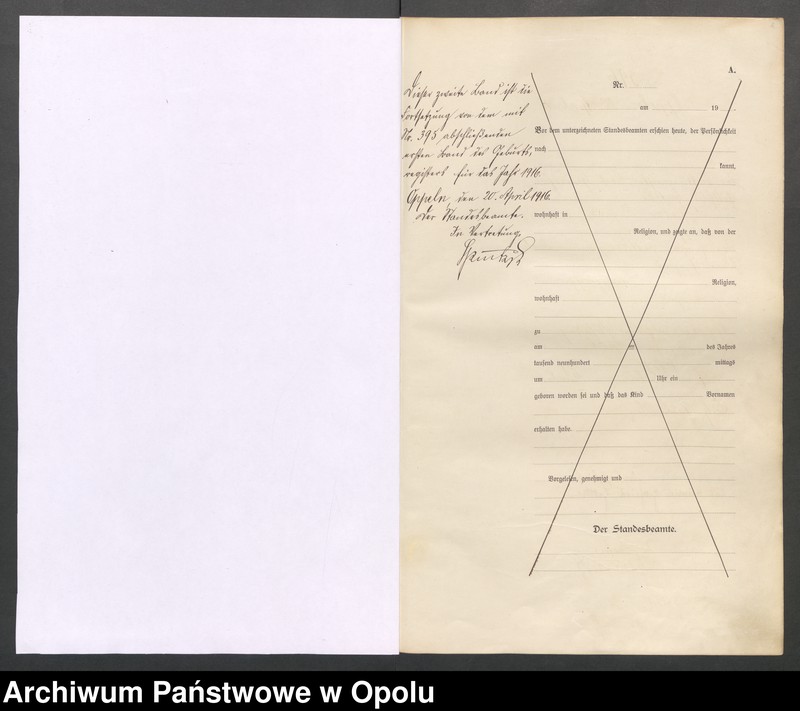 Dieser zweite Band ist die
Fortsetzung von dem mit
Nr. 395 abschließenden
ersten Band des Geburts-
registers für das Jahr 1916.
Oppeln, den 20. April 1916.
Der Standesbeamte.
In Vertretung.
A.
Nr.
am 19
Vor dem unterzeichneten Standesbeamten erschien heute, der Persönlichkeit
nach
kannt,
wohnhaft in
Religion, und zeigte an, daß von der
Religion,
wohnhaft
zu
am des Jahres
tausend neunhundert mittags
um Uhr ein
geboren worden sei und daß das Kind Vornamen
erhalten habe.
Vorgelesen, genehmigt und
Der Standesbeamte.
Archiwum Państwowe w Opolu